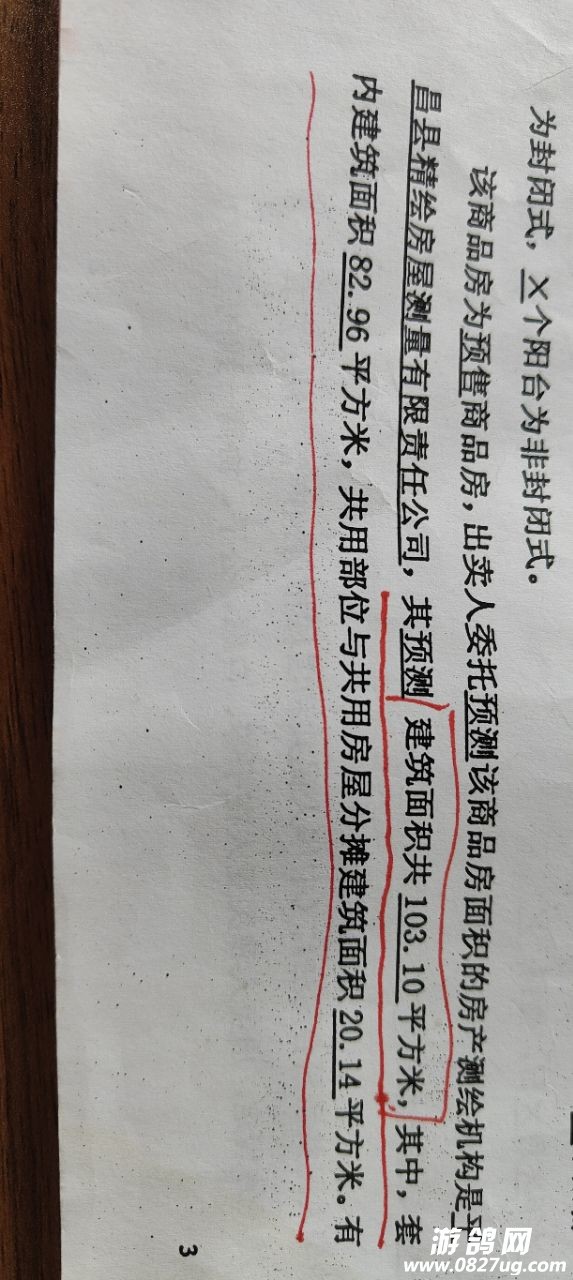 为封闭式，X个阳台为非封闭式。
该商品房为预售商品房，出卖人委托预测该商品房面积的房产测绘机构是平
昌县精绘房屋测量有限责任公司，其预测建筑面积共103.10平方米，其中，套
内建筑面积82.96平方米，共用部位与共用房屋分摊建筑面积20.14平方米。有
3
游鸽网
www.0827ug.com